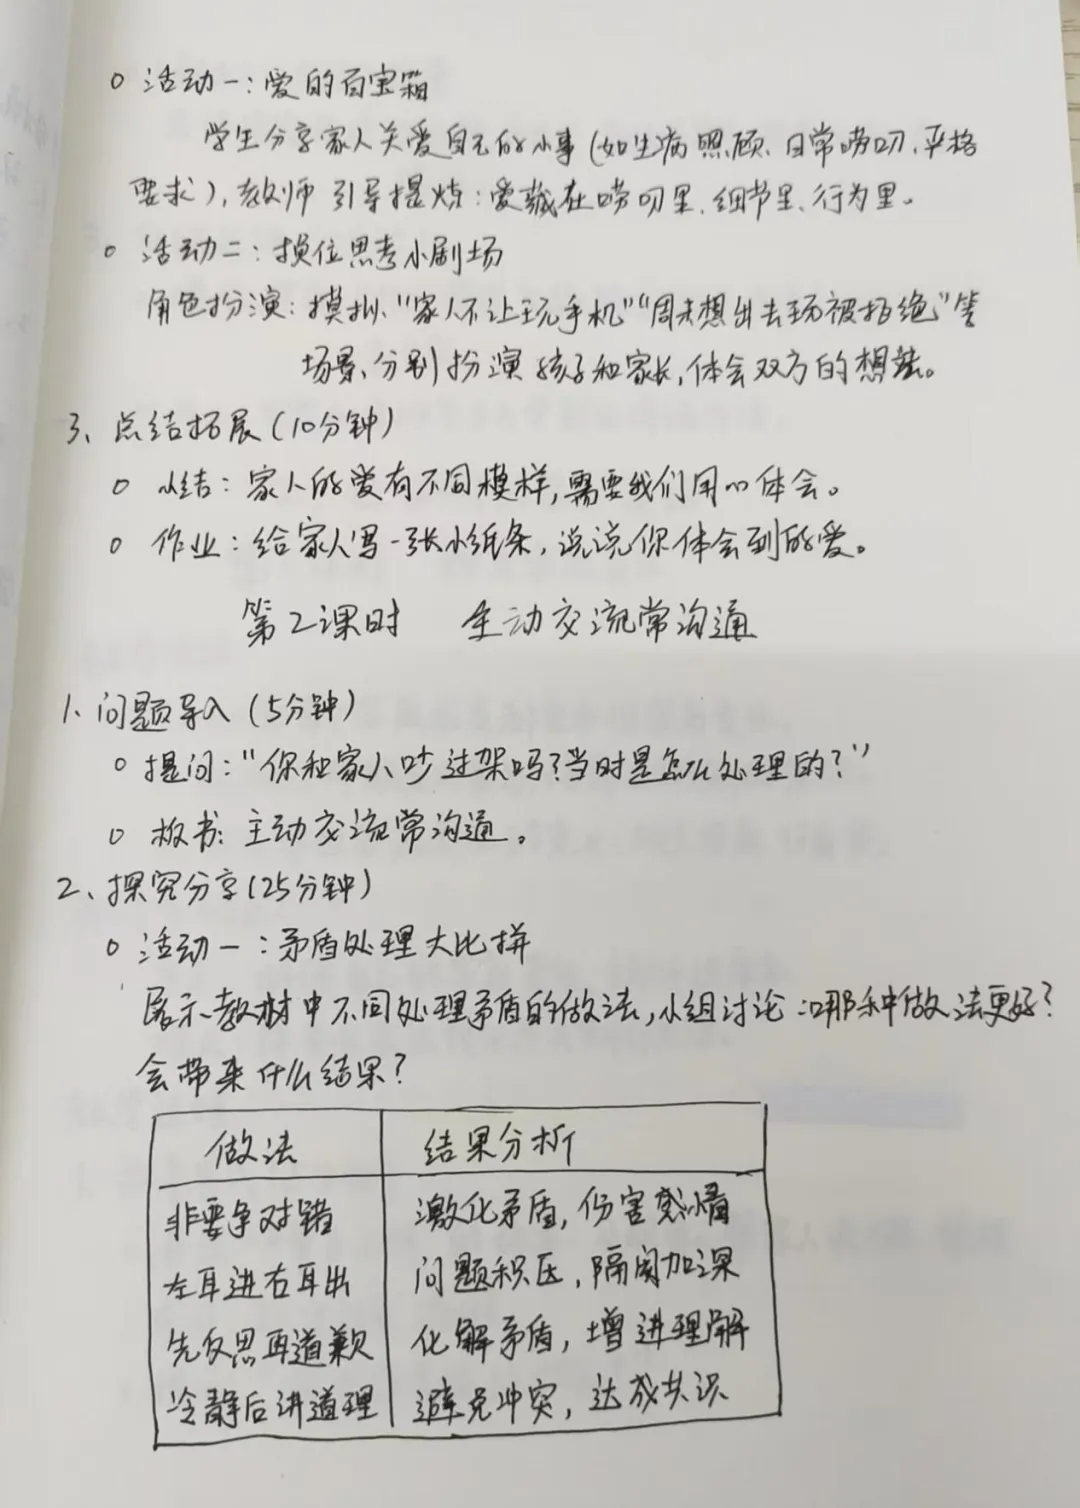 ○ 活动一：爱的百宝箱
学生分享家人关爱自己的小事(如生病照顾、日常唠叨、严格
要求)，教师引导提炼：爱藏在唠叨里、细节里、行为里。
○ 活动二：换位思考小剧场
角色扮演：模拟“家人不让玩手机”“周末想出去玩被拒绝”等
场景，分别扮演孩子和家长，体会双方的想法。
3、总结拓展(10分钟)
○ 小结：家人的爱有不同模样，需要我们用心体会。
○ 作业：给家人写一张小纸条，说说你体会到的爱。
第2课时 主动交流常沟通
1、问题导入(5分钟)
○ 提问：“你和家人吵过架吗？当时是怎么处理的？”
○ 板书：主动交流常沟通。
2、探究分享(25分钟)
○ 活动一：矛盾处理大比拼
展示教材中不同处理矛盾的做法，小组讨论：哪种做法更好？
会带来什么结果？
做法 结果分析
非要争对错 激化矛盾，伤害感情
左耳进右耳出 问题积压，隔阂加深
先反思再道歉 化解矛盾，增进理解
冷静后讲道理 避免冲突，达成共识